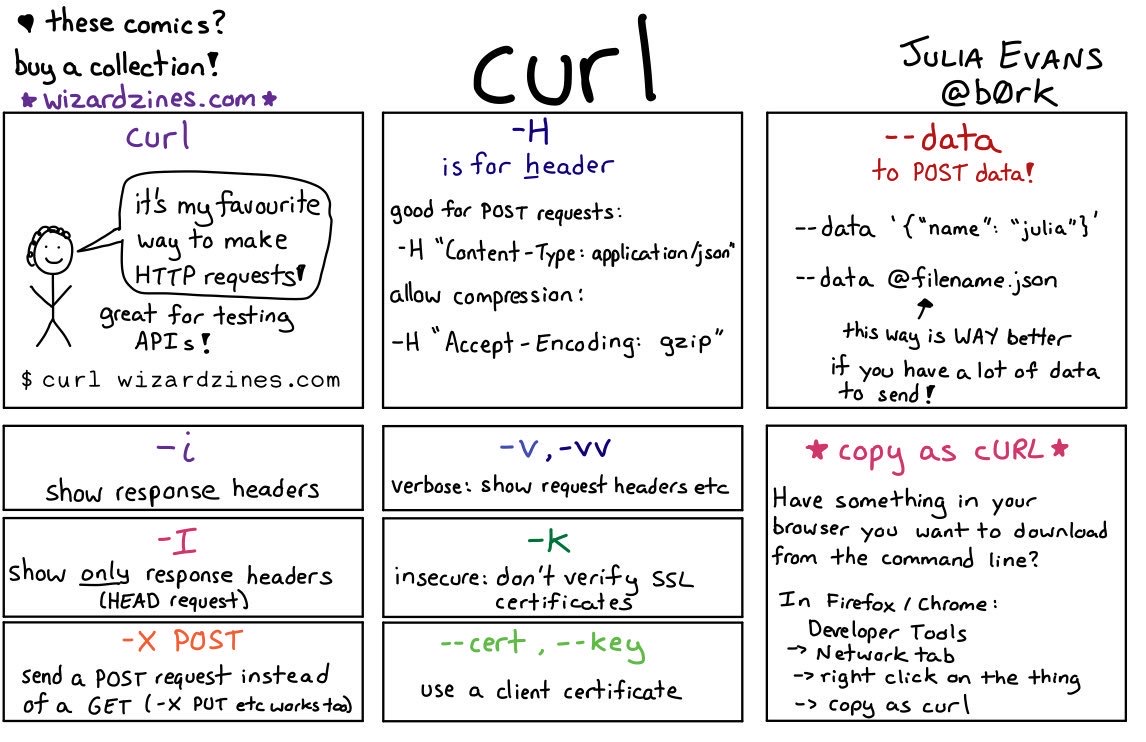 ♥ these comics?
buy a collection!
★ wizardzines.com ★
curl
JULIA EVANS
@b0rk
curl
it's my favourite
way to make
HTTP requests!
great for testing
APIs!
$ curl wizardzines.com
-H
is for header
good for POST requests:
-H "Content-Type: application/json"
allow compression:
-H "Accept-Encoding: gzip"
--data
to POST data!
--data '{"name": "julia"}'
--data @filename.json
this way is WAY better
if you have a lot of data
to send!
-i
show response headers
-I
show only response headers
(HEAD request)
-X POST
send a POST request instead
of a GET (-X PUT etc works too)
-v, -vv
verbose: show request headers etc
-k
insecure: don't verify SSL
certificates
--cert, --key
use a client certificate
★ copy as cURL ★
Have something in your
browser you want to download
from the command line?
In Firefox / Chrome:
Developer Tools
→ Network tab
→ right click on the thing
→ copy as curl